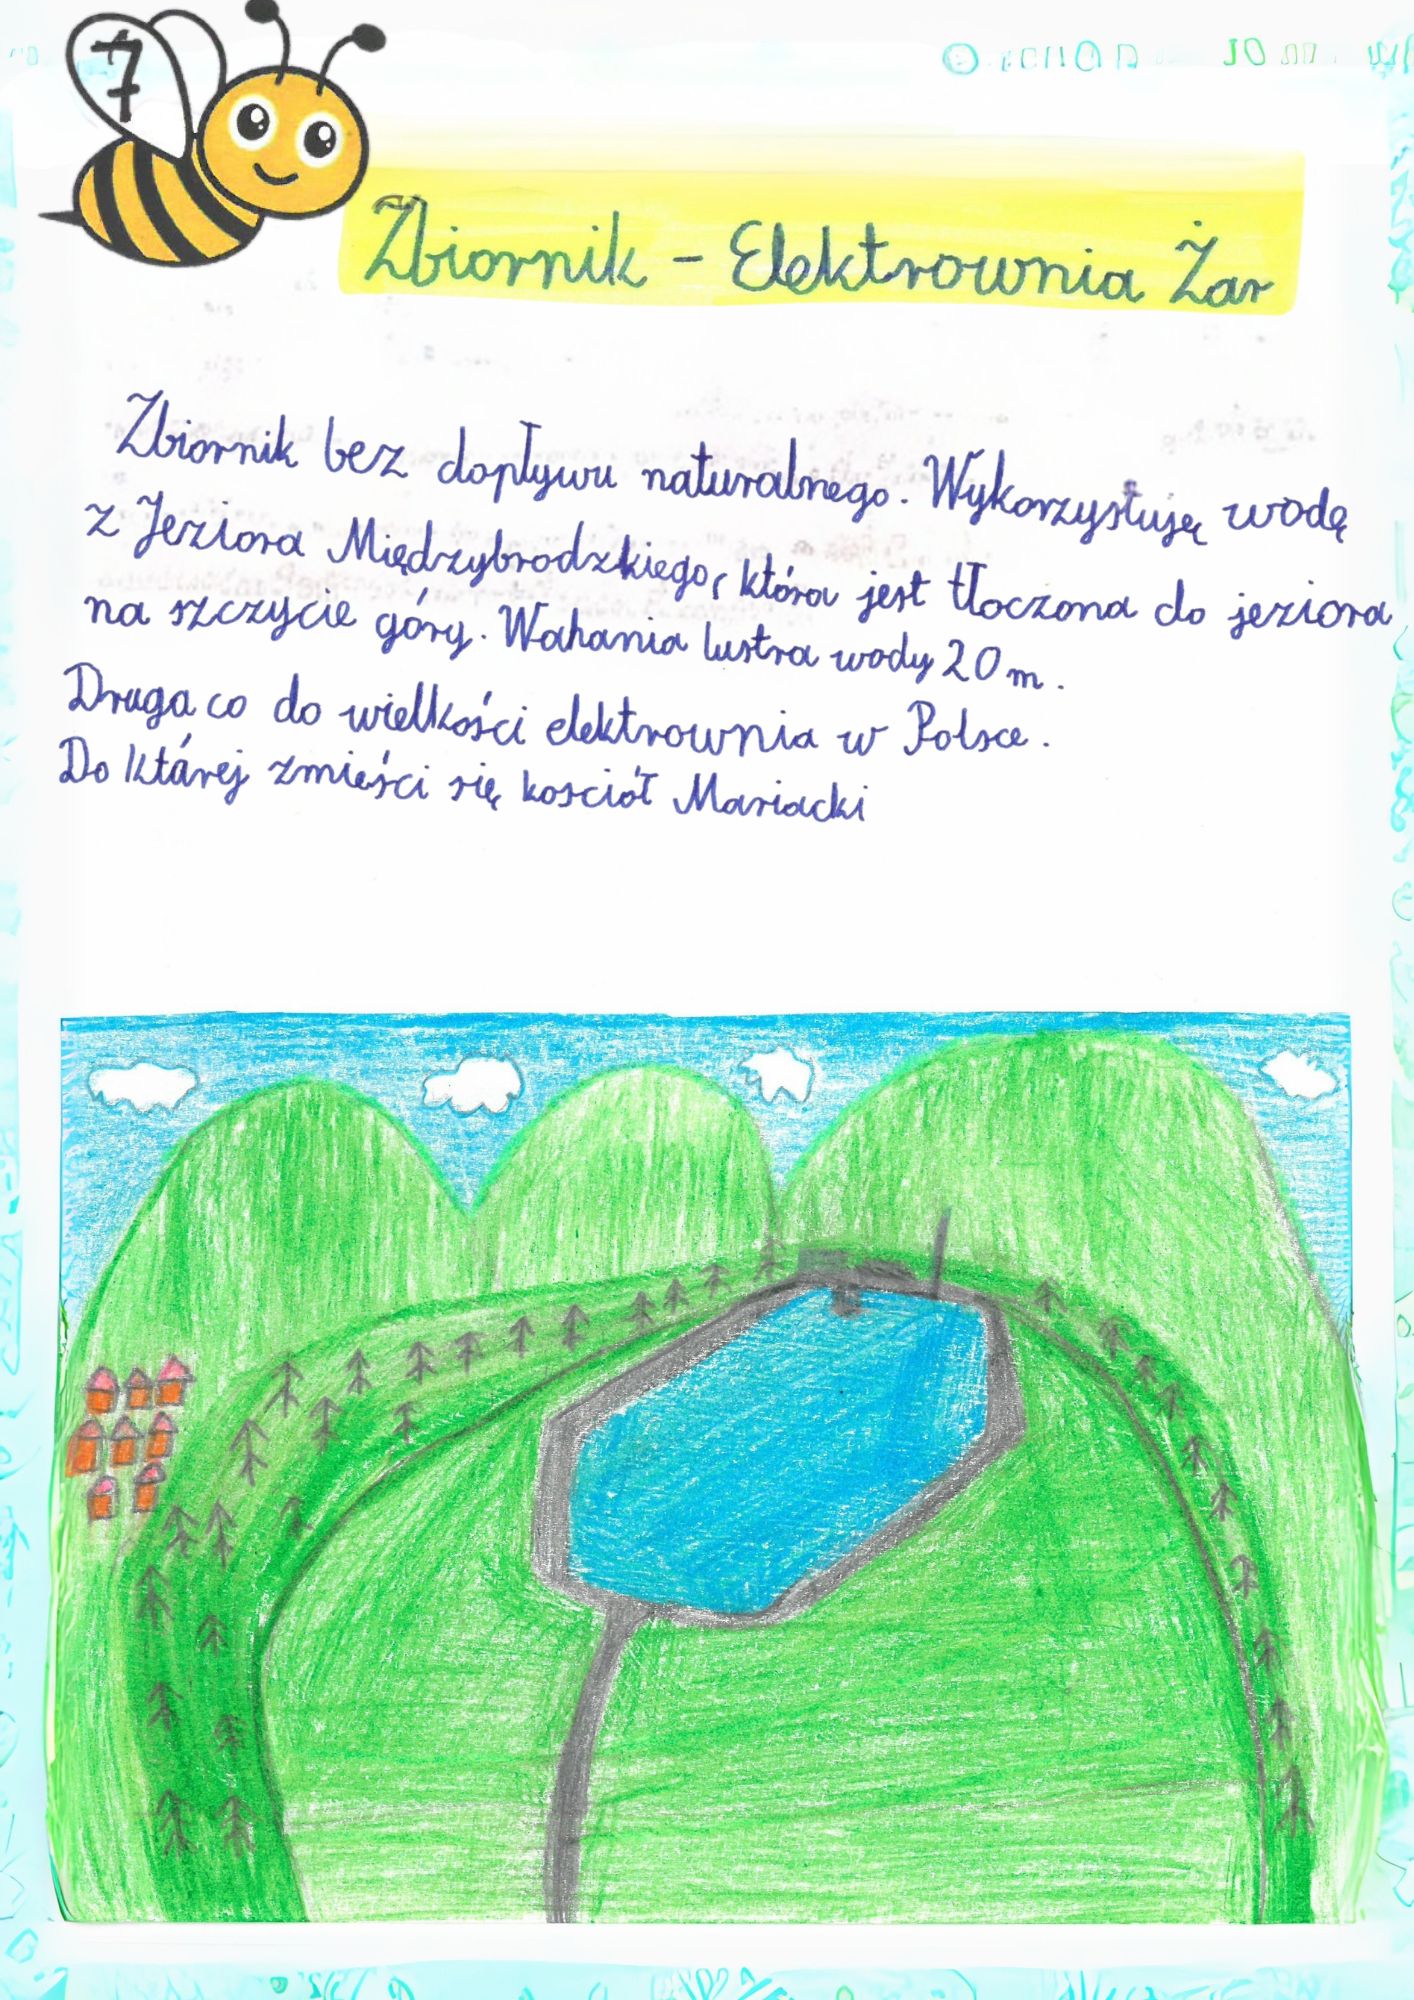 7
Zbiornik - Elektrownia Żar
Zbiornik bez dopływu naturalnego. Wykorzystuję wodę
z Jeziora Międzybrodzkiego, która jest tłoczona do jeziora
na szczycie góry. Wahania lustra wody 20 m.
Druga co do wielkości elektrownia w Polsce.
Do której zmieści się kosciół Mariacki